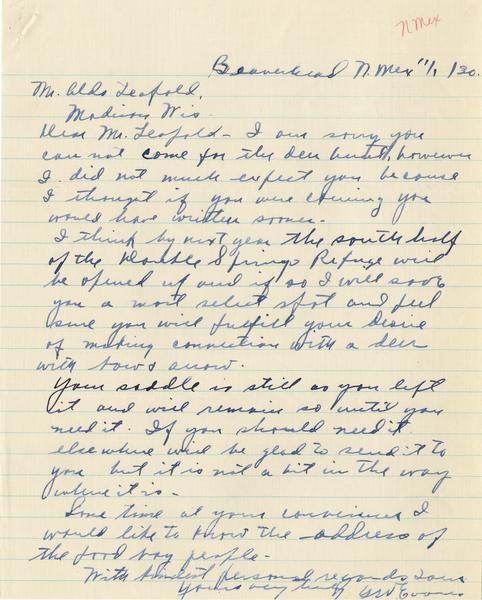 N Mex
Beaverhead N. Mex 11/1/30.
Mr. Aldo Leopold,
Madison Wis.
Dear Mr. Leopold - I am sorry you
can not come for the deer hunt, however
I did not much expect you because
I thought if you were coming you
would have written sooner.
I think by next year the south half
of the Double Springs Refuge will
be opened up and if so I will save
you a most select spot and feel
sure you will fulfill your desire
of making connection with a deer
with bow & arrow.
Your saddle is still as you left
it and will remain so until you
need it. If you should need it
elsewhere will be glad to send it to
you but it is not a bit in the way
where it is -
Some time at your convenience I
would like to know the address of
the food bag people -
With kindest personal regards I am
Yours very truly
Evans